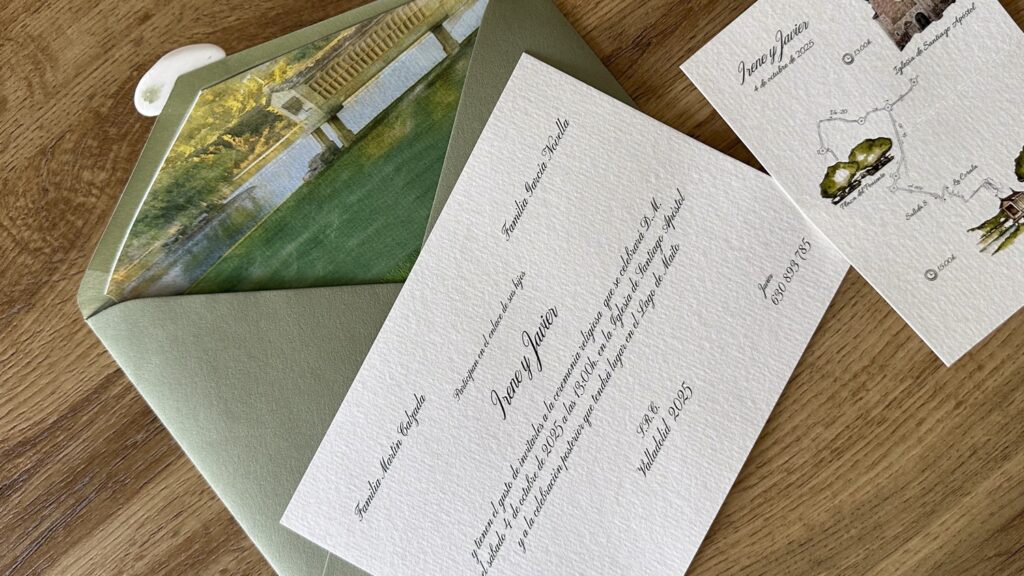 Familia Martín Calzada
Familia García Novella
Participan en el enlace de sus hijos
Irene y Javier
y tienen el gusto de invitarles a la ceremonia religiosa que se celebrará D.M.
el sábado 4 de octubre de 2025 a las 13:00h. en la Iglesia de Santiago Apóstol
y a la celebración posterior que tendrá lugar en el Lago de Maite
S.R.C.
Valladolid 2025
630 893 785
Irene y Javier
4 de octubre de 2025
13:00h
Iglesia de Santiago Apóstol
Salida 8
La Corala
15:00h